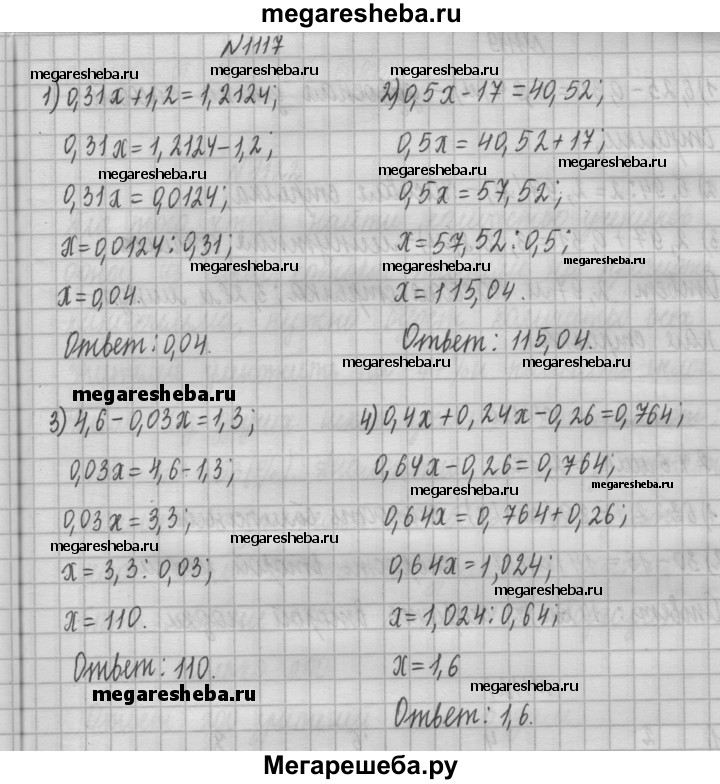 megaresheba.ru
N1117
megaresheba.ru megaresheba.ru
1) 0,31x+1,2=1,2124;
0,31x=1,2124-1,2;
megaresheba.ru
0,31x=0,0124;
x=0,0124:0,31;
megaresheba.ru
x=0,04.
Ответ: 0,04.
megaresheba.ru
2) 0,5x-17=40,52;
0,5x=40,52+17;
megaresheba.ru
0,5x=57,52;
x=57,52:0,5;
megaresheba.ru
x=115,04.
Ответ: 115,04.
megaresheba.ru
megaresheba.ru
3) 4,6-0,03x=1,3;
0,03x=4,6-1,3;
0,03x=3,3;
megaresheba.ru
megaresheba.ru
x=3,3:0,03;
x=110.
Ответ: 110.
megaresheba.ru
4) 0,4x+0,24x-0,26=0,764;
megaresheba.ru
0,64x-0,26=0,764;
megaresheba.ru
megaresheba.ru
0,64x=0,764+0,26;
0,64x=1,024;
megaresheba.ru
x=1,024:0,64;
x=1,6
megaresheba.ru
Ответ: 1,6.
Мегарешеба.ру